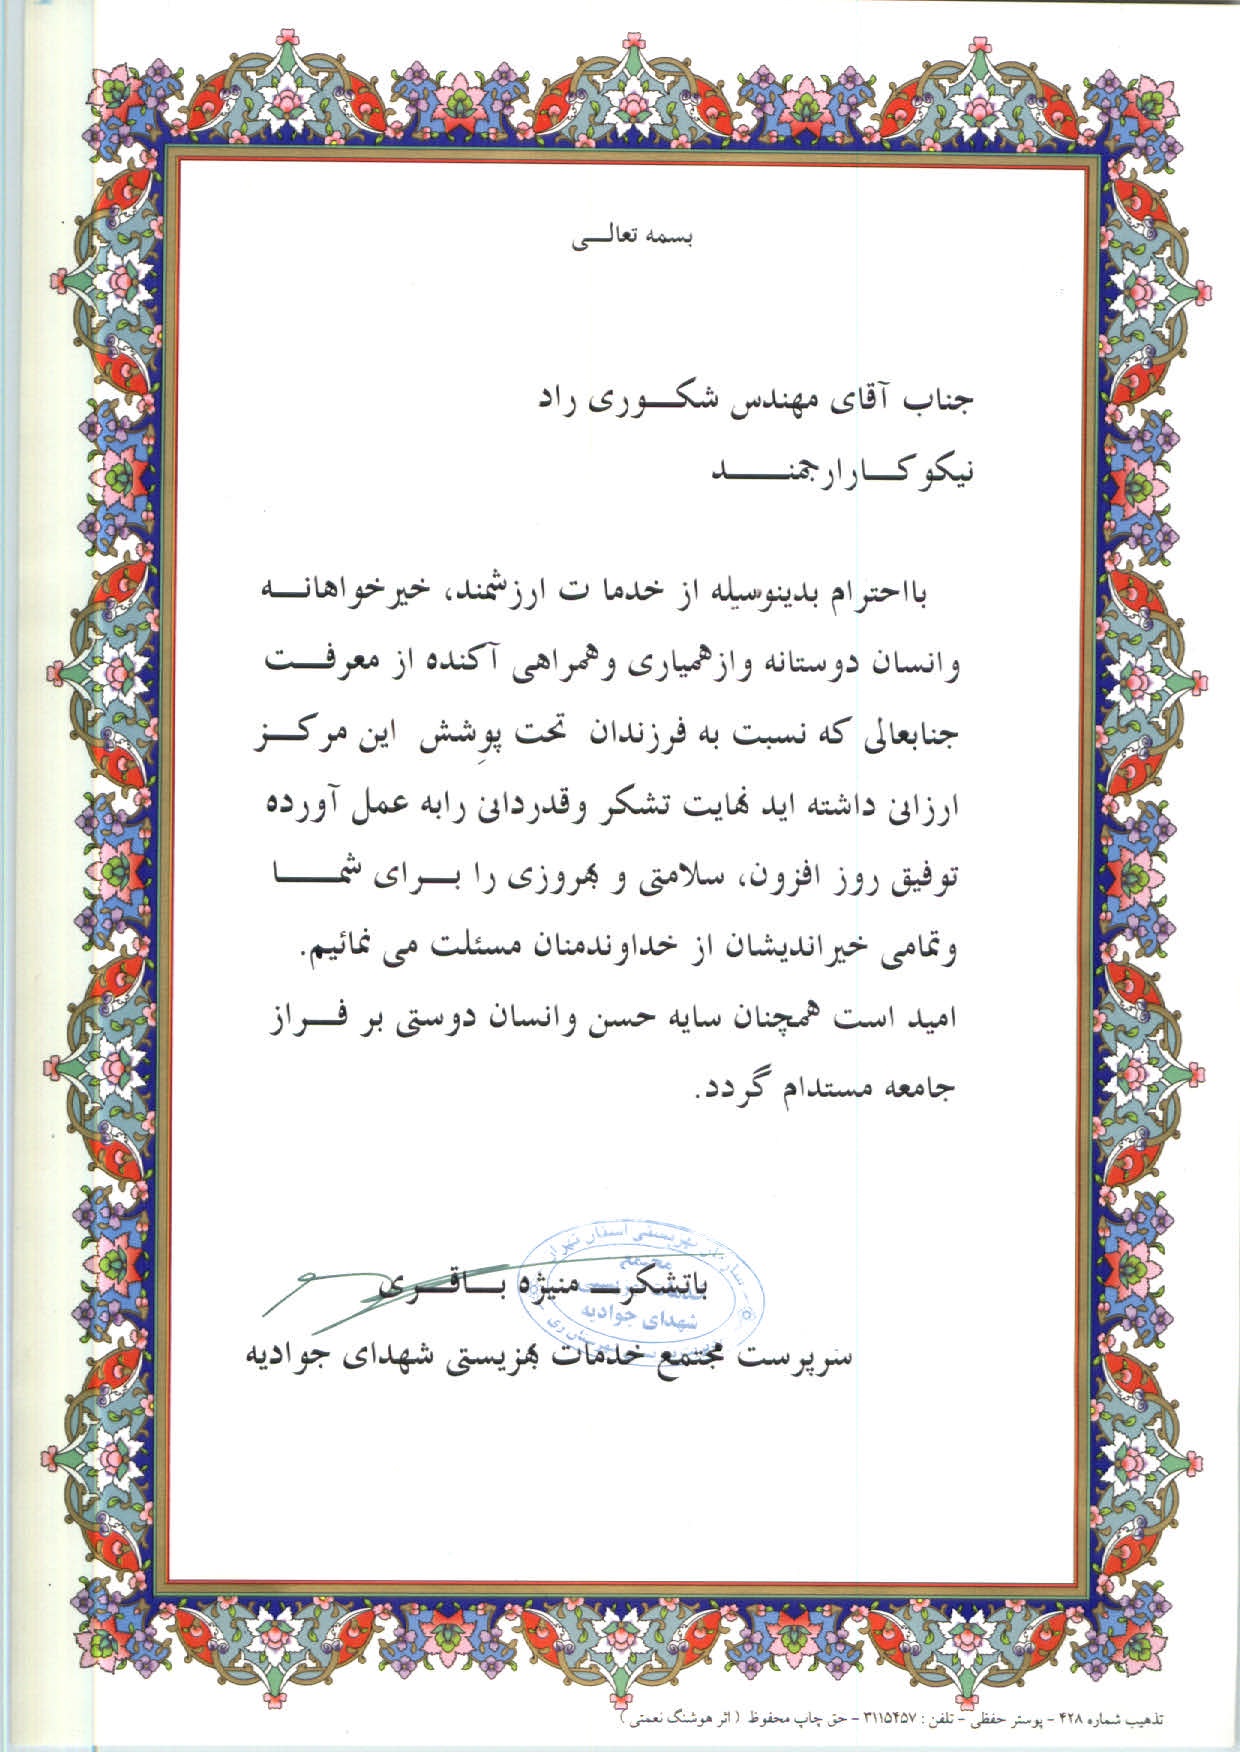 بسمه تعالـی
جناب آقای مهندس شکـوری راد
نیکو کـار ارجمنـد
بااحترام بدینوسیله از خدما ت ارزشمند، خیرخواهانـه
وانسان دوستانه وازهمیاری وهمراهی آکنده از معرفـت
جنابعالی که نسبت به فرزندان تحت پوشش این مرکـز
ارزانی داشته اید نهایت تشکر وقدردانی رابه عمل آورده
توفیق روز افزون، سلامتی و بهروزی را بـرای شمـا
وتمامی خیراندیشان از خداوندمنان مسئلت می نمائیم.
امید است همچنان سایه حسن وانسان دوستی بر فـراز
جامعه مستدام گردد.
سازمان بهزیستی استان تهران
مجتمع
شهدای جوادیه
باتشکرـ منیژه بـاقـری
سرپرست مجتمع خدمات بهزیستی شهدای جوادیه
تذهیب شماره ۴۲۸ - پوستر حفظی - تلفن : ۳۱۱۵۴۵۷ - حق چاپ محفوظ (اثر هوشنگ نعمتی)